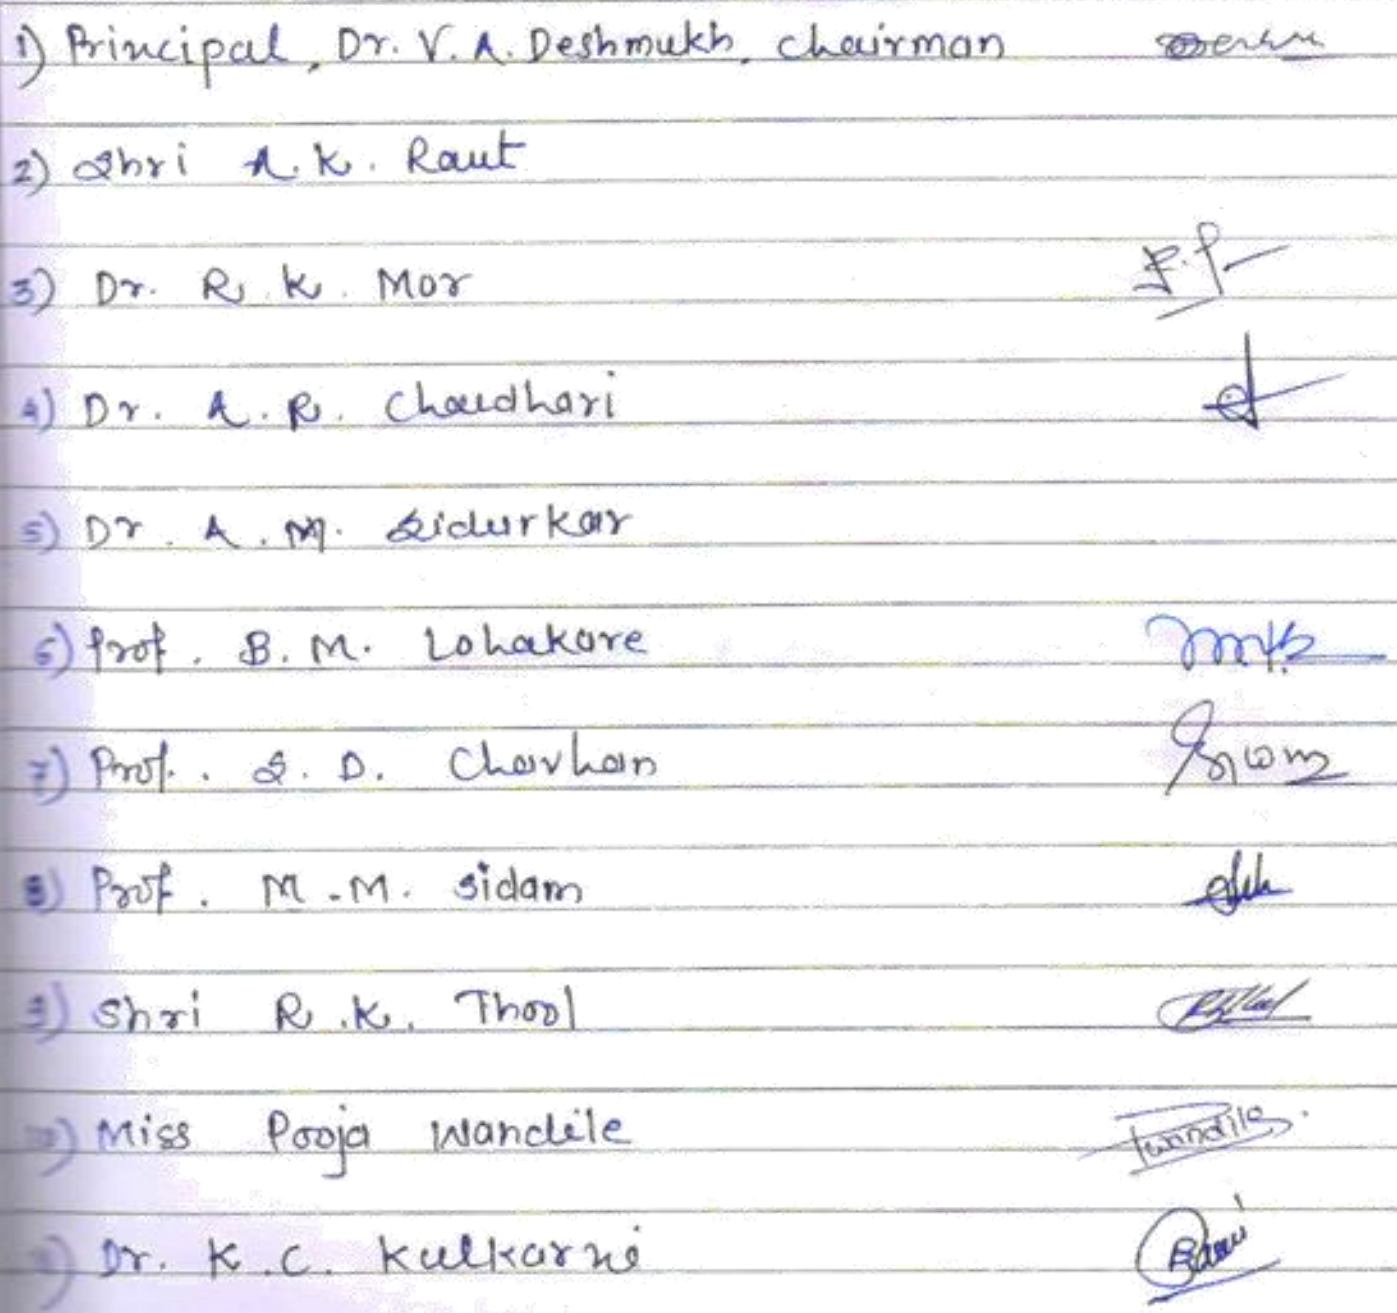 1) Principal, Dr. V. A. Deshmukh, Chairman
2) Shri A. K. Raut
3) Dr. R. K. Mor
4) Dr. A. R. Chaudhari
5) Dr. A. M. Sidurkar
6) Prof. B. M. Lohakare
7) Prof. S. D. Chavhan
8) Prof. M. M. Sidam
9) Shri R. K. Thool
10) Miss Pooja Wandile Pwandile
11) Dr. K. C. Kulkarni